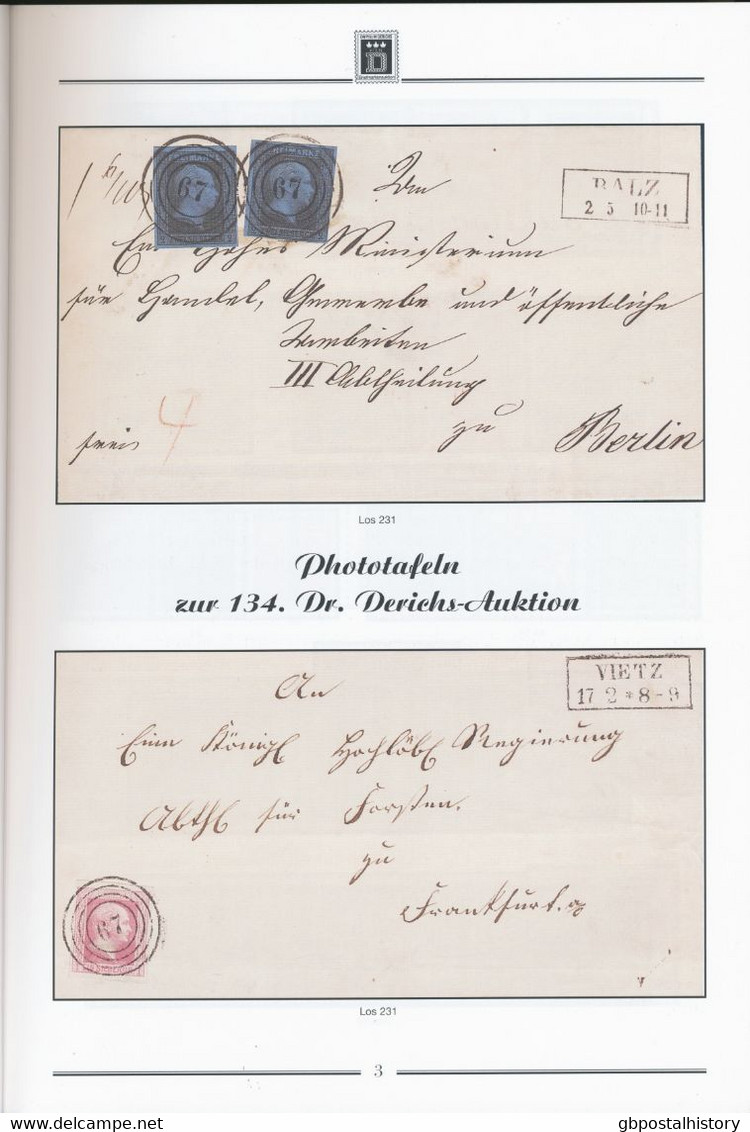 FREIMARKE
FREIMARKE
67
67
An
BALZ
2 5 10-11
Ein Hohes Ministerium
für Handel, Gewerbe und öffentliche
Arbeiten
III Abtheilung
zu
Berlin
frei
4
Los 231
Phototafeln
zur 134. Dr. Derichs-Auktion
VIETZ
17 2 * 8-9
An
Eine Königl Hochlöbl Regierung
Abthl für Forsten.
zu
Frankfurt. a/o
67
Los 231
3
gbpostalhistory